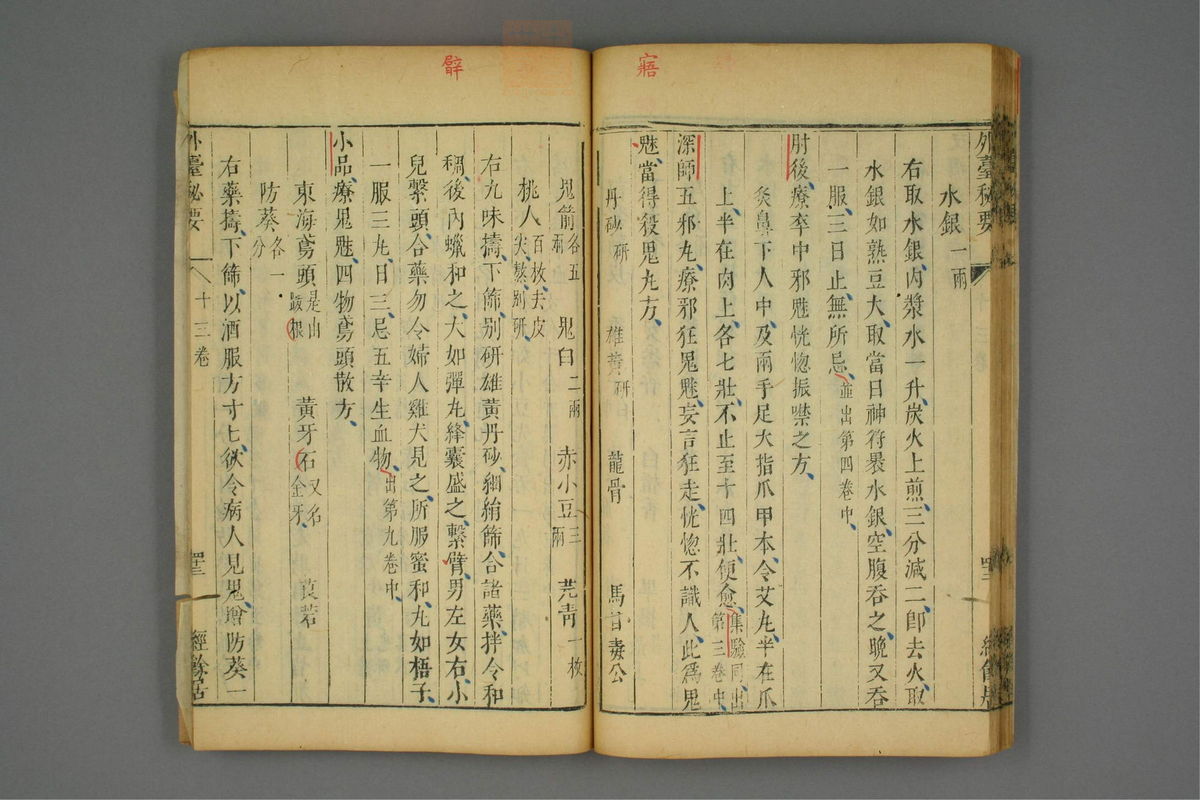 寤
外臺秘要
水銀一兩
右取水銀内漿水一升炭火上煎三分減二即去火取
水銀如熟豆大取當日神符裹水銀空腹吞之晚又吞
一服三日止無所忌並出第四卷中
肘後療卒中邪魅恍惚振噤之方
灸鼻下人中及兩手足大指爪甲本令艾丸半在爪
上半在肉上各七壯不止至十四壯便愈集驗同出第三卷中
深師五邪丸療邪狂鬼魅妄言狂走恍惚不識人此為鬼
魅當得殺鬼丸方
丹砂研 雄黄研 龍骨 馬目毒公
鬼箭各五兩 鬼臼二兩 赤小豆三兩 芫青一枚
桃人百枚去皮尖熬别研
右九味擣下篩别研雄黄丹砂細絹篩合諸藥拌令和
稠後内蠟和之大如彈丸絳囊盛之繫臂男左女右小
兒繫頭合藥勿令婦人雞犬見之所服蜜和丸如梧子
一服三丸日三忌五辛生血物出第九卷中
小品療鬼魅四物鳶頭散方
東海鳶頭是由跋根 黄牙石又名金牙 莨菪
防葵各一分
右藥擣下篩以酒服方寸匕欲令病人見鬼增防葵一
外臺秘要
十三卷
四三
經餘居
躃